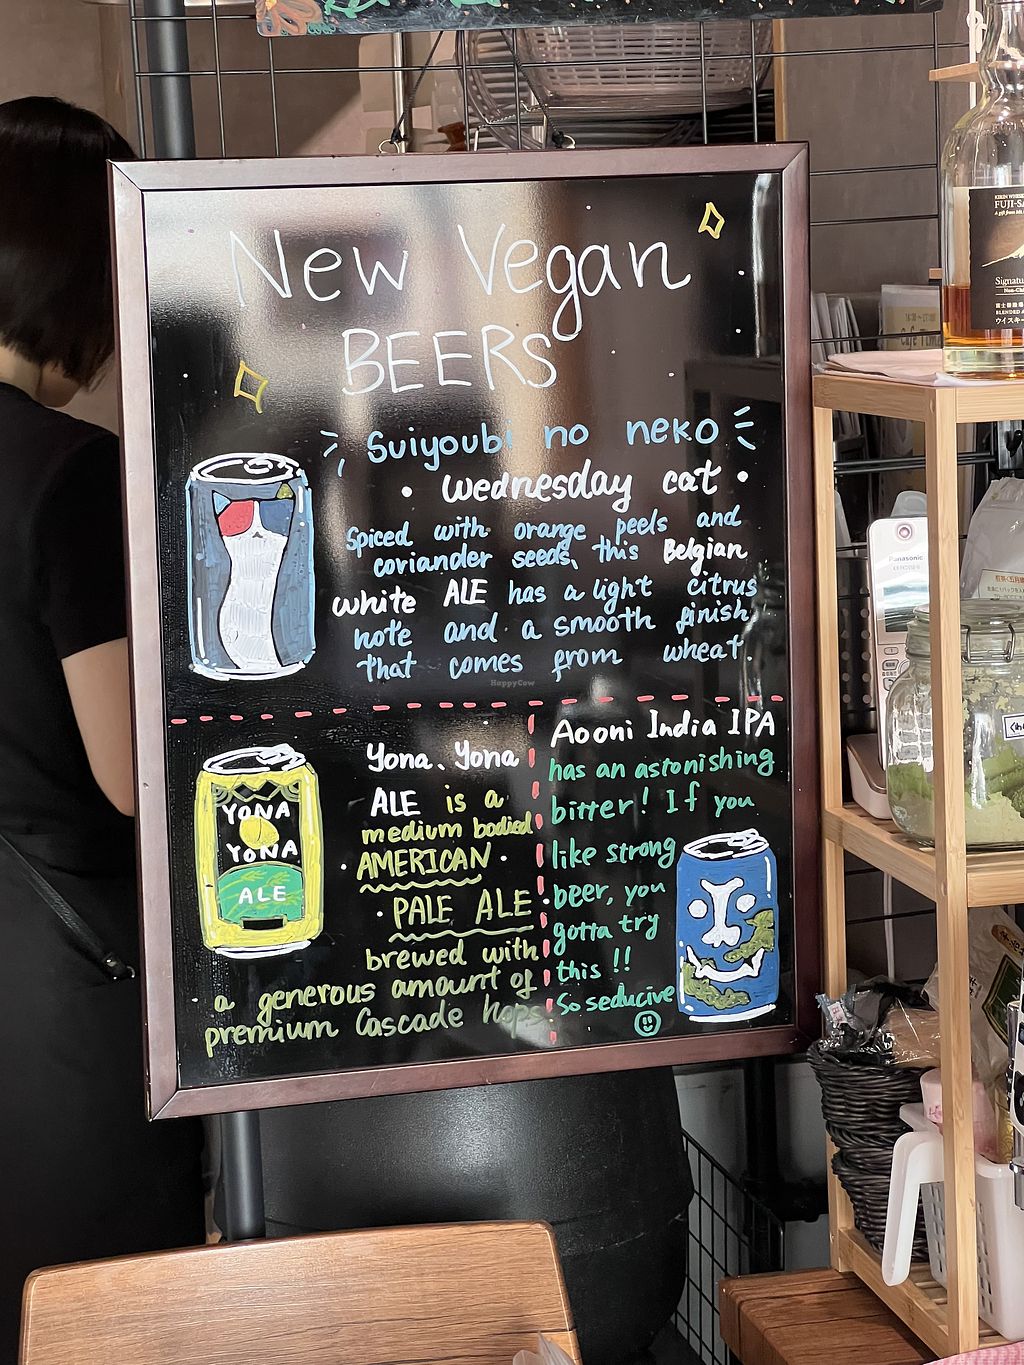 New Vegan
BEERS
Suiyoubi no neko
• wednesday cat •
Spiced with orange peels and
coriander seeds, this Belgian
white ALE has a light citrus
note and a smooth finish
that comes from wheat.
HappyCow
YONA
YONA
ALE
Yona. Yona
ALE is a
medium bodied
AMERICAN
PALE ALE
brewed with
a generous amount of
premium Cascade hops.
Aooni India IPA
has an astonishing
bitter! If you
like strong
beer, you
gotta try
this !!
So seducive
KIRIN WHISKY
Signatu
BLENDED
ウイスキー
Panasonic